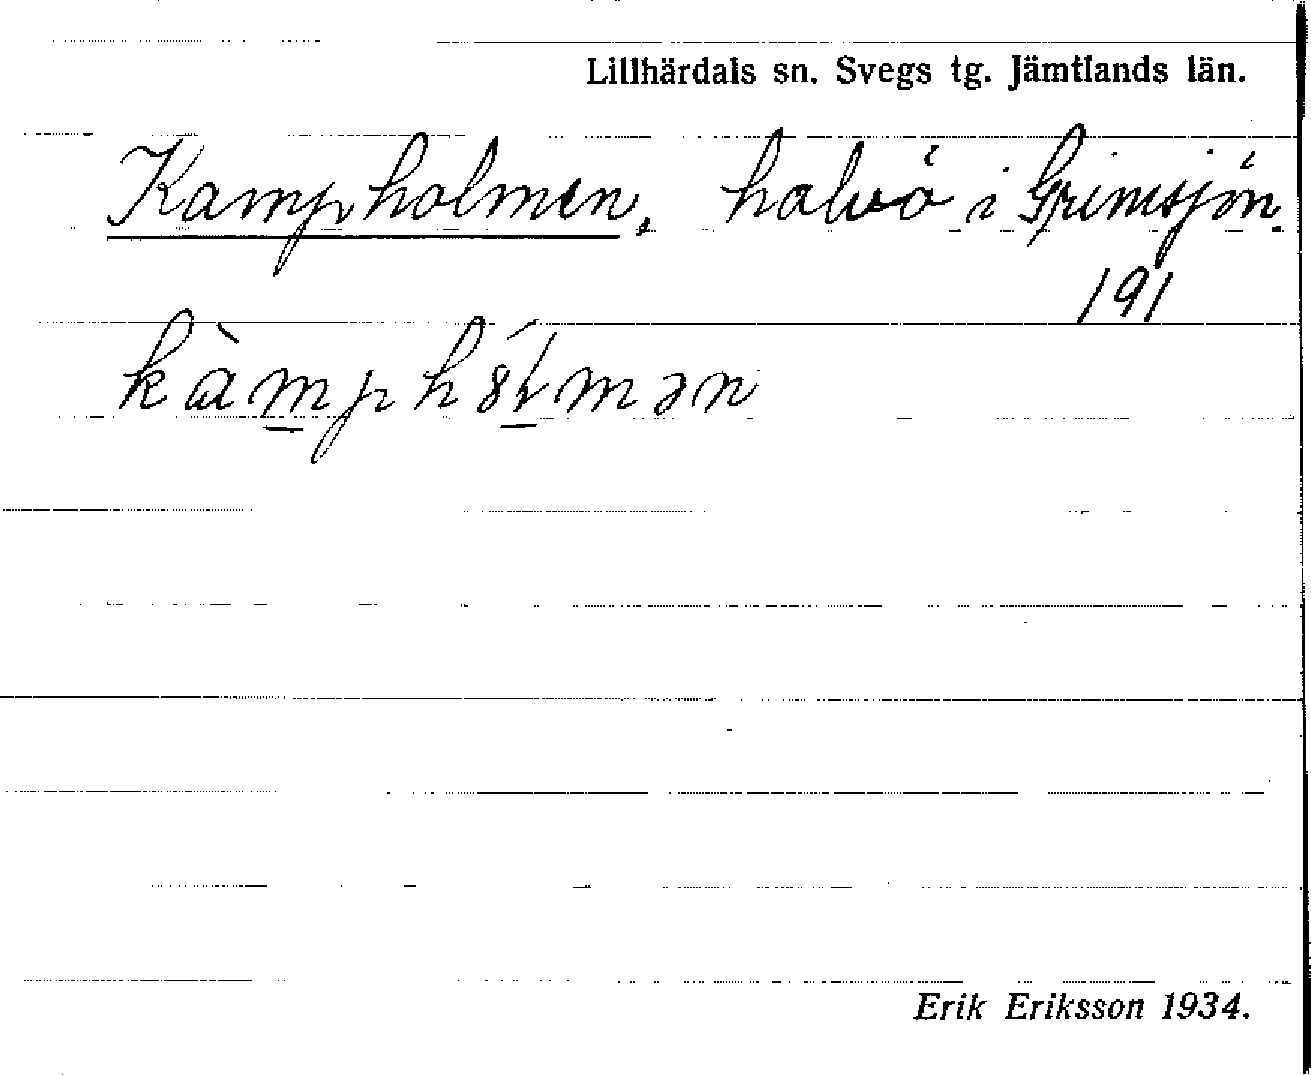 Lillhärdals sn. Svegs tg. Jämtlands län.
Kampholmen, halvö i Grimsjön.
191
Erik Eriksson 1934.